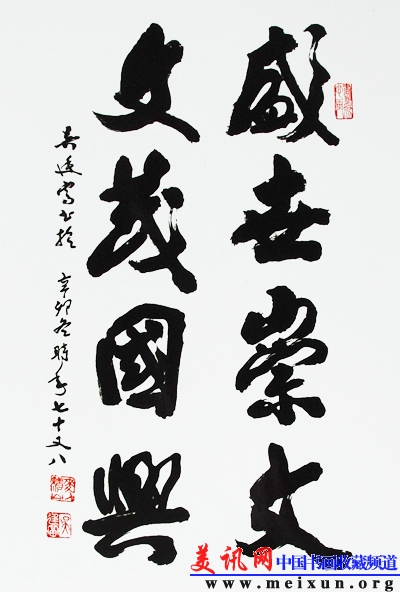 盛世崇文
文茂國興
书於 辛卯冬時年七十又八
美讯网中国书画收藏频道
www.meixun.org